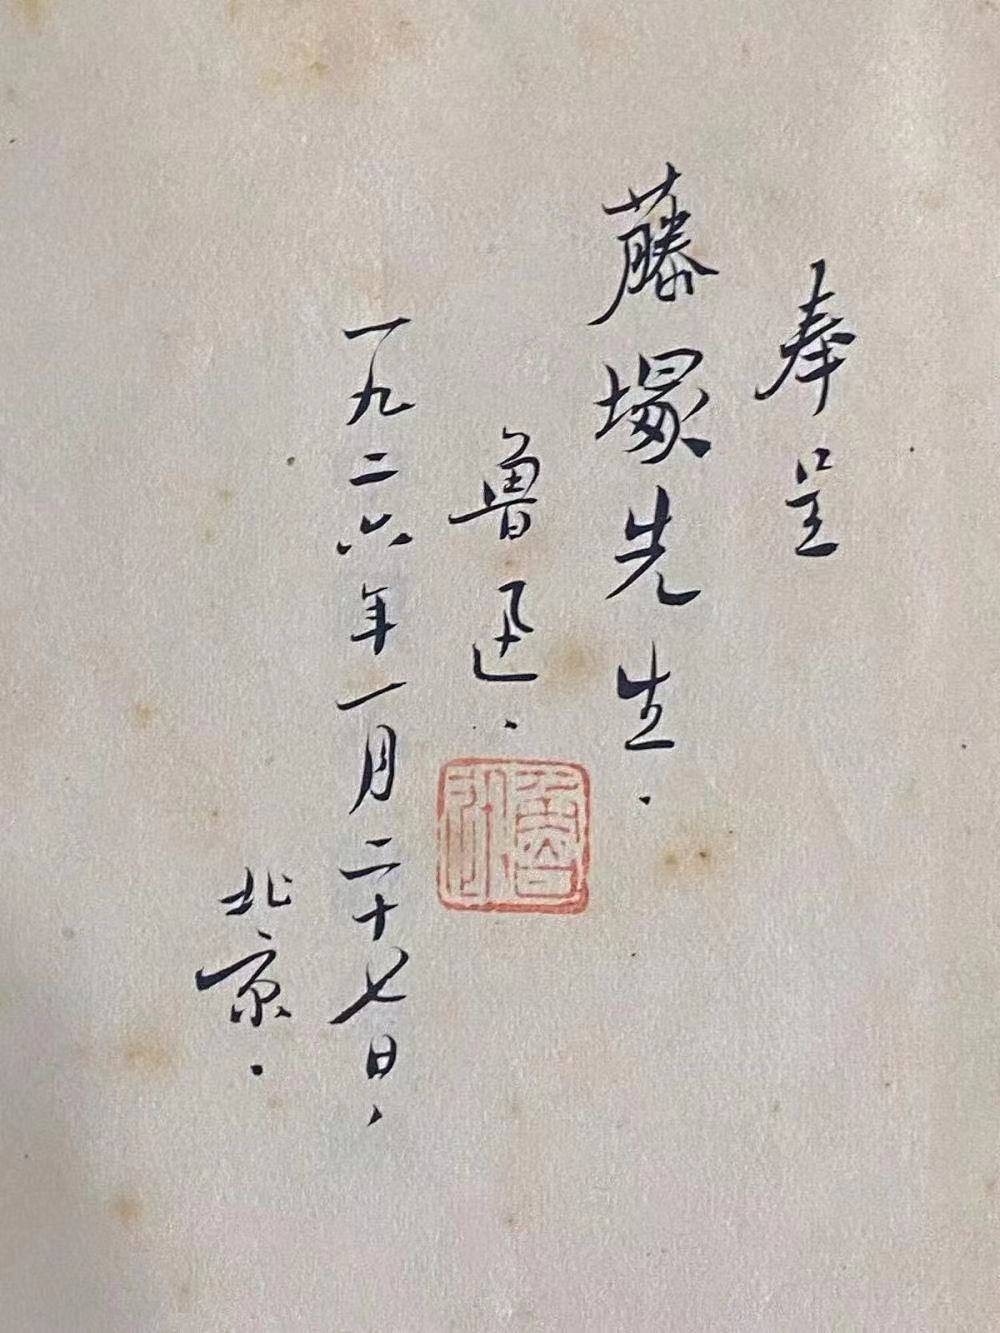 奉呈
藤塚先生．
魯迅．
魯迅
一九二六年一月二十七日，
北京．